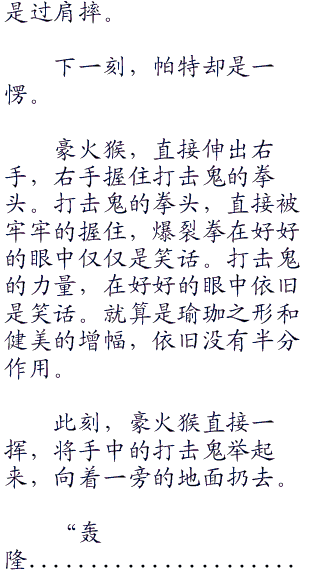 是过肩摔。
下一刻，帕特却是一
愣。
豪火猴，直接伸出右
手，右手握住打击鬼的拳
头。打击鬼的拳头，直接被
牢牢的握住，爆裂拳在好好
的眼中仅仅是笑话。打击鬼
的力量，在好好的眼中依旧
是笑话。就算是瑜珈之形和
健美的增幅，依旧没有半分
作用。
此刻，豪火猴直接一
挥，将手中的打击鬼举起
来，向着一旁的地面扔去。
“轰
隆......................